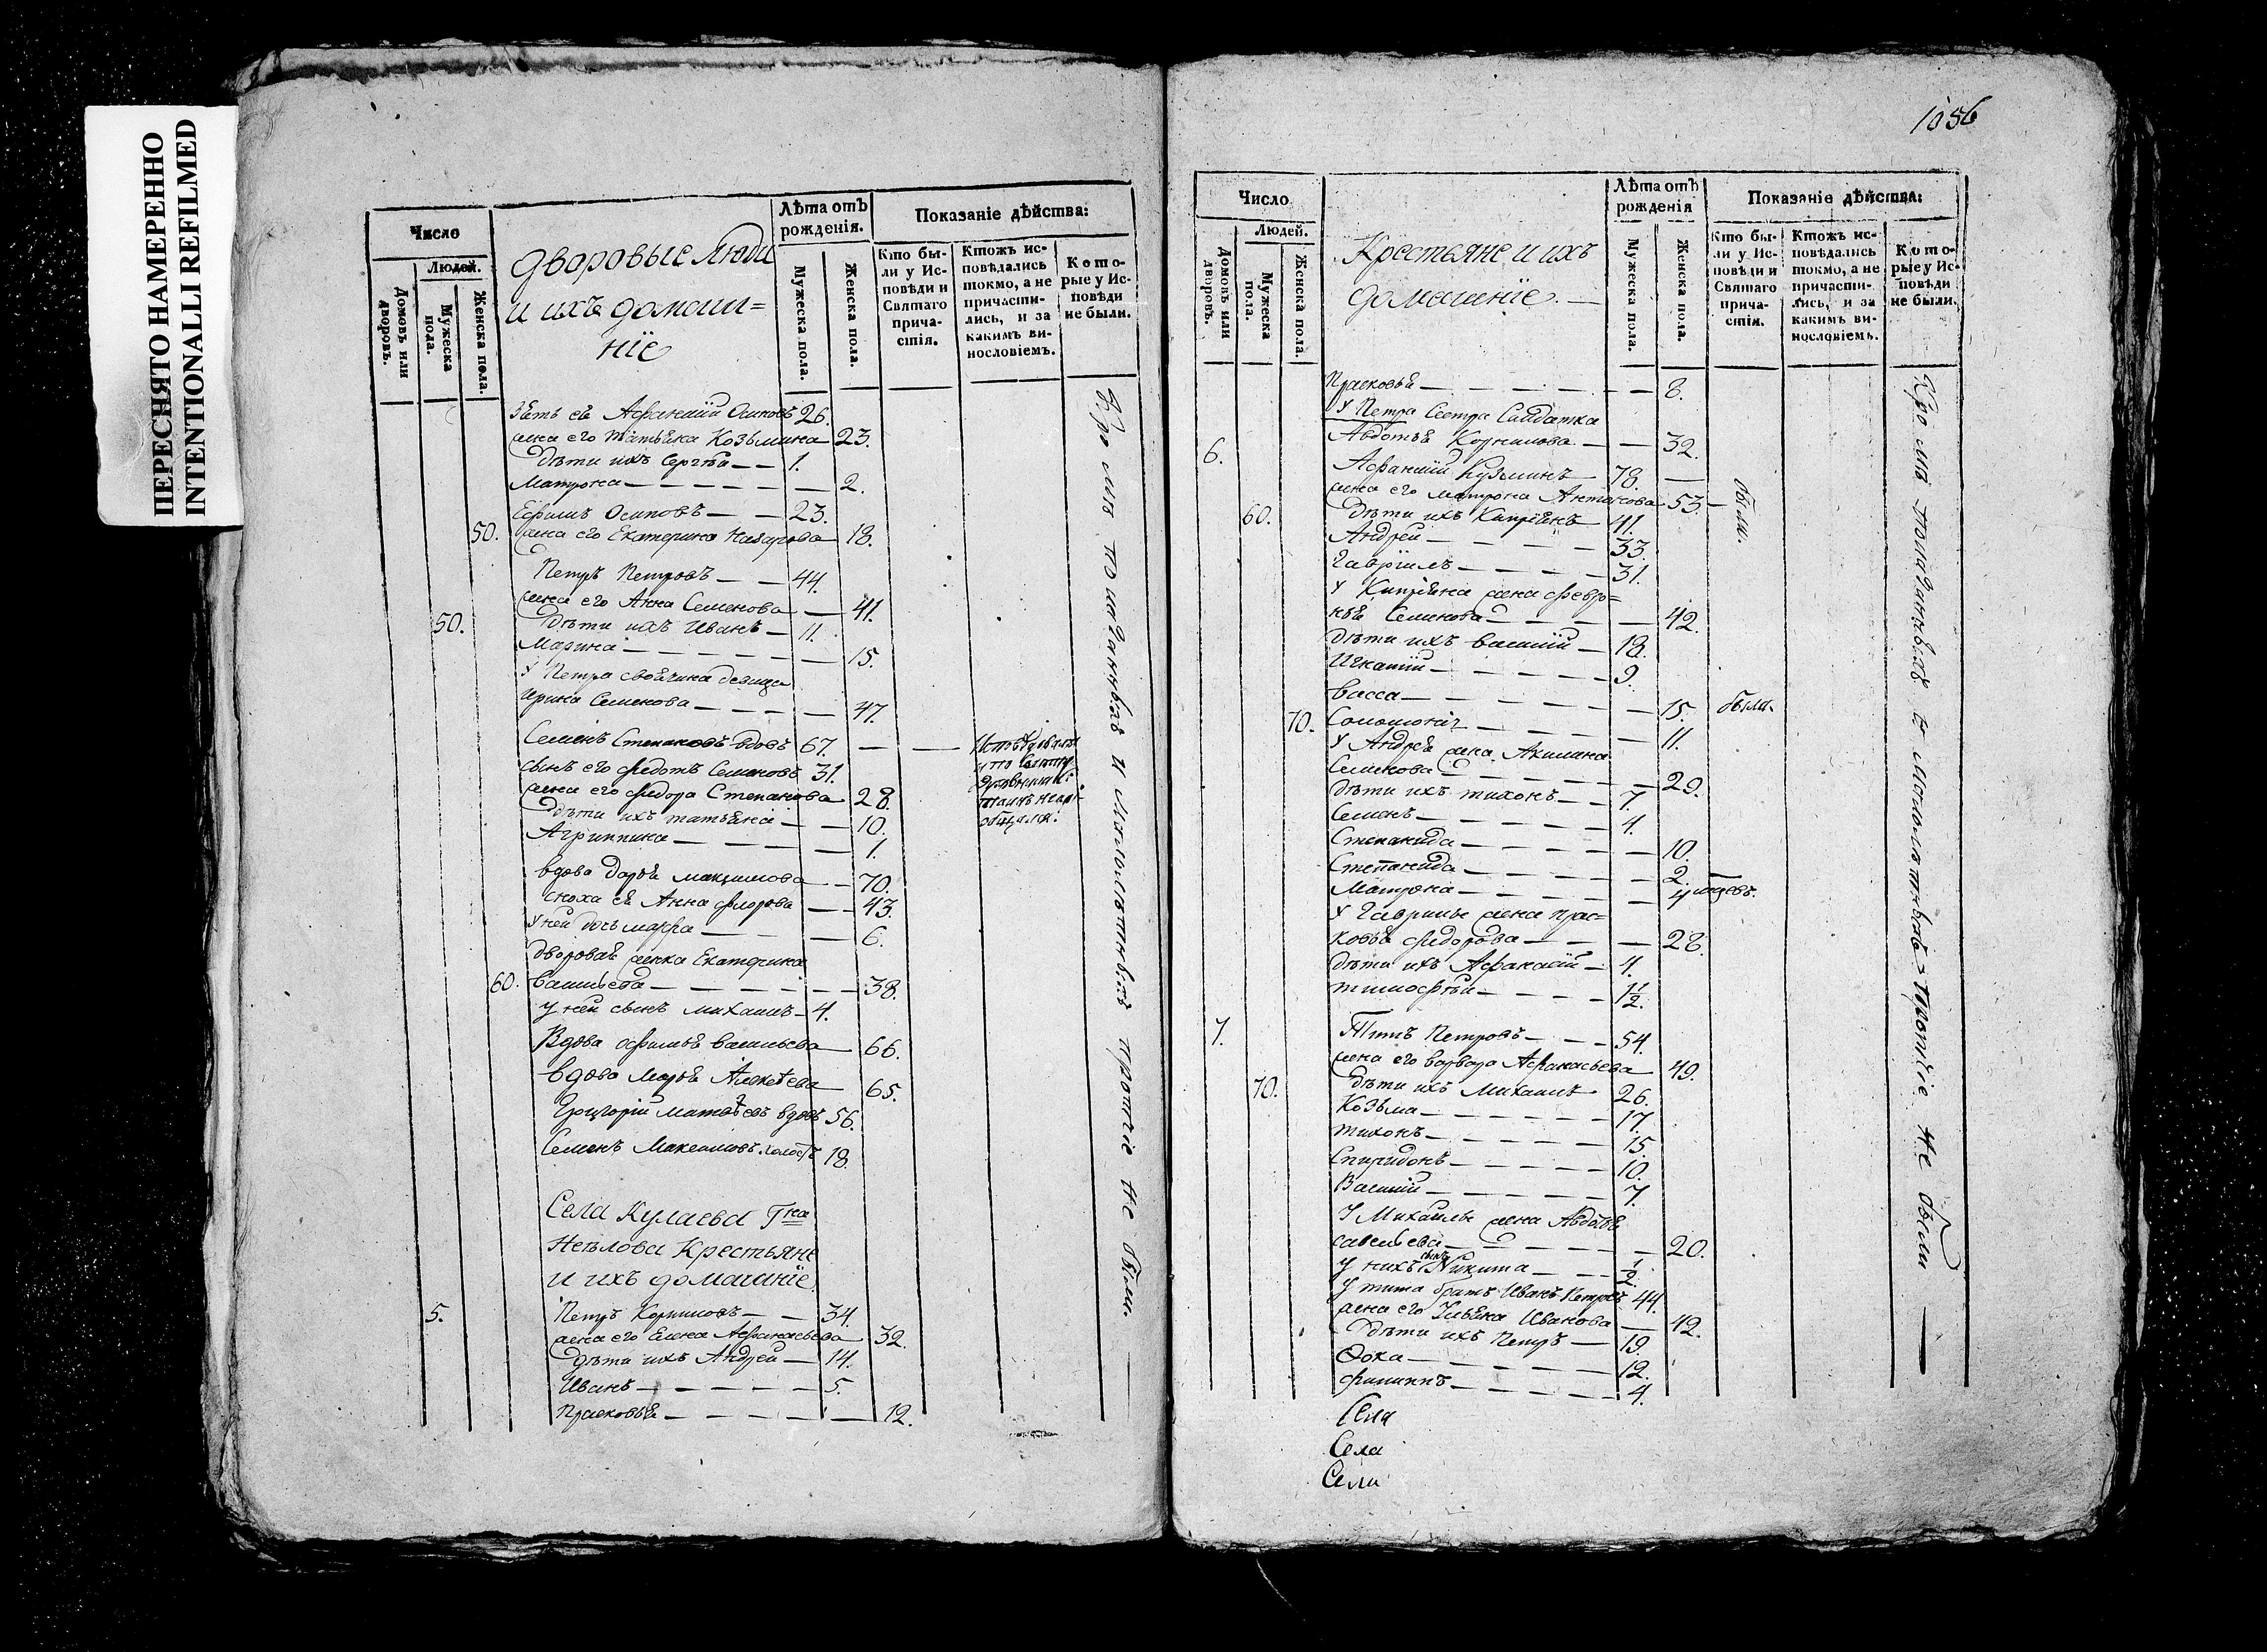 ПЕРЕСНЯТО НАМЕРЕННО
INTENTIONALLI REFILMED
Число
Людей.
Домовъ или дворовъ.
Мужеска пола.
Женска пола.
Дворовые люди
и ихъ домаш=
ніе
Лѣта отъ рожденія.
Мужеска пола.
Женска пола.
Показаніе дѣйства:
Кто бы-
ли у Ис-
повѣди и
Святаго
прича-
стія.
Ктожъ ис-
повѣдались
токмо, а не
причасти-
лись, и за
какимъ ви-
нословіемъ.
Кото-
рые у Ис-
повѣди
не были.
зѣть еѣ Афанасій Осиповъ 26.
жена его Татьѣна Козьмина 23.
дѣти ихъ Сергѣй 1.
Матрона 2.
Ефимъ Осиповъ 23.
50. жена его Екатерина Назарова 18.
Петръ Петровъ 44.
жена его Анна Семенова 41.
50. дѣти ихъ Иванъ 11.
Марина 15.
У Петра свойчина девица
Ирина Семенова 47.
Семенъ Степановъ вдовъ 67.
сынъ его Федотъ Семеновъ 31.
жена его Федора Степанова 28.
дѣти ихъ татьѣна 10.
Агрипина 1.
вдова Дарьѣ максимова 70.
сноха еѣ Анна Флорова 43.
У ней дочь марфа 6.
двороваѣ женка Екатерина
60. Васильева 38.
у ней сынъ михаилъ 4.
Вдова Офимьѣ Васильева 66.
вдова Марьѣ Алексѣева 65.
Григорій Матвѣевъ вдовъ 56.
Семенъ Максимовъ холостъ 18.
Села Кулаева Гна
Неѣлова Крестьяне
и ихъ домашніе
5. Петръ Корниловъ 34.
жена его Елена Афанасьева 32.
дѣти ихъ Андрей 14.
Иванъ 5.
Прасковьѣ 12.
не были.
1056
Число
Людей.
Домовъ или дворовъ.
Мужеска пола.
Женска пола.
Крестьяне и ихъ
домашніе.
Лѣта отъ рожденія
Мужеска пола.
Женска пола.
Показаніе дѣйства:
Кто бы-
ли у Ис-
повѣди и
Святаго
прича-
стія.
Ктожъ ис-
повѣдались
токмо, а не
причасти-
лись, и за
какимъ ви-
нословіемъ.
Кото-
рые у Ис-
повѣди
не были.
Прасковьѣ 8.
У Петра Сестра Салдатка
Авдотьѣ Корнилова 32.
6. Афанасій Кузминъ 78.
жена его матрона Антонова 53.
60. дѣти ихъ Кипріѣнъ 41.
Андрей 33.
Гаврілъ 31.
У Кипріѣна жена Февро=
ньѣ Семенова 42.
дѣти ихъ Василій 18.
Игнатій 9.
Васса 15. были.
70. Соломониѣ 11.
У Андреѣ жена Акилина
Семенова 29.
дѣти ихъ тихонъ 7.
Семенъ 4.
Степанида 10.
Степанида 2.
Матрона 4 мѣсецъ.
У Гаврилы жена прас=
ковьѣ Федорова 28.
дѣти ихъ Афанасій 4.
тимофѣй 1 1/2.
7. Титъ Петровъ 54.
жена его варвара Афанасьева 49.
70. дѣти ихъ Михаилъ 26.
Козьма 17.
тихонъ 15.
Спиридонъ 10.
Василій 7.
У Михаилы жена Авдотьѣ
савельева 20.
у нихъ сынъ Никита 1/2.
У тита братъ Иванъ Петровъ 44.
жена его Ульѣна Иванова 42.
дѣти ихъ Петръ 19.
Фока 12.
филиппъ 4.
были.
не были
Села
Села
Села